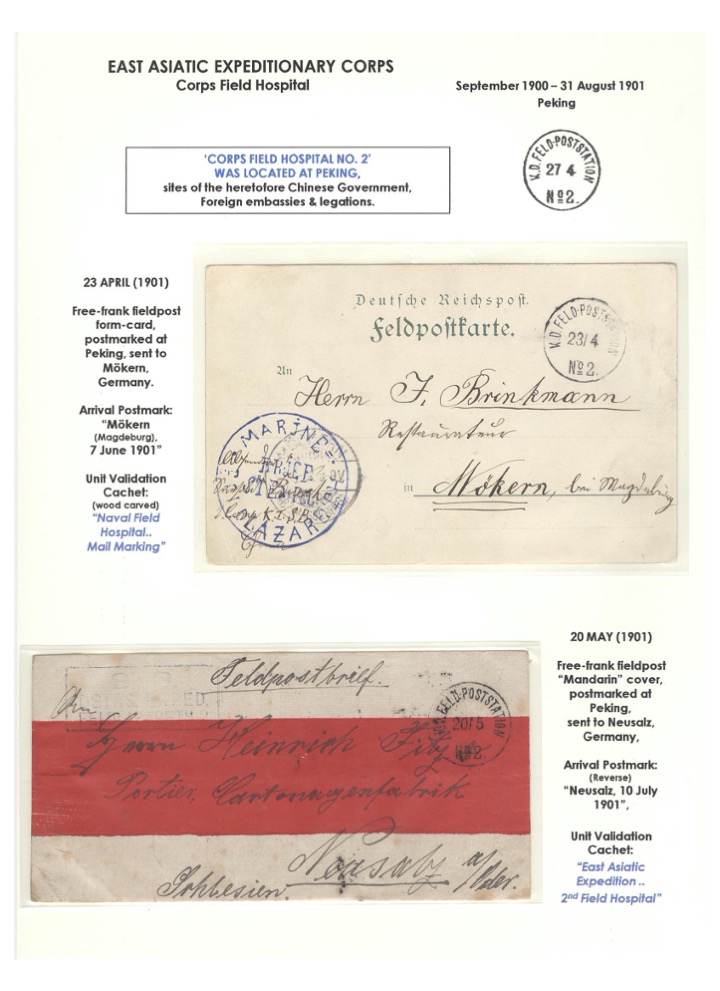 EAST ASIATIC EXPEDITIONARY CORPS
Corps Field Hospital
September 1900 – 31 August 1901
Peking
'CORPS FIELD HOSPITAL NO. 2'
WAS LOCATED AT PEKING,
sites of the heretofore Chinese Government,
Foreign embassies & legations.
K.D. FELD-POSTSTATION
27 4
No 2.
23 APRIL (1901)
Free-frank fieldpost
form-card,
postmarked at
Peking, sent to
Mökern,
Germany.
Arrival Postmark:
"Mökern
(Magdeburg),
7 June 1901"
Unit Validation
Cachet:
(wood carved)
"Naval Field
Hospital..
Mail Marking"
Deutsche Reichspost.
Feldpostkarte.
K.D. FELD-POSTSTATION
23/4
No 2.
An
Herrn F. Brinkmann
Restaurateur
in Mökern, bei Magdeburg
MARINE
BRIEF
LAZARETH
20 MAY (1901)
Free-frank fieldpost
"Mandarin" cover,
postmarked at
Peking,
sent to Neusalz,
Germany,
Arrival Postmark:
(Reverse)
"Neusalz, 10 July
1901",
Unit Validation
Cachet:
"East Asiatic
Expedition ..
2nd Field Hospital"
Feldpostbrief.
K.D. FELD-POSTSTATION
20/5
No 2.
Herrn Heinrich
Portier, Cartonagenfabrik
Neusalz a/Oder.
Schlesien.